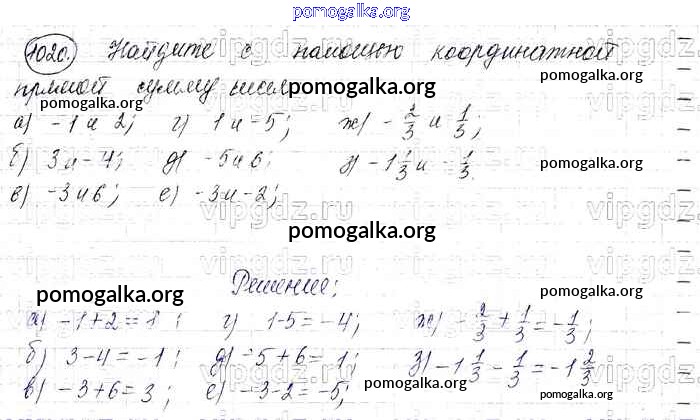 pomogalka.org
1020. Найдите с помощью координатной
прямой сумму чисел
pomogalka.org pomogalka.org pomogalka.org
а) -1 и 2; г) 1 и -5; ж) -2/3 и 1/3;
б) 3 и -4; д) -5 и 6; з) -1 1/3 и -1/3.
pomogalka.org
в) -3 и 6; е) -3 и -2;
pomogalka.org
vipgdz.ru
Решение:
pomogalka.org pomogalka.org
а) -1+2=1; г) 1-5=-4; ж) -2/3+1/3=-1/3;
б) 3-4=-1; д) -5+6=1; з) -1 1/3-1/3=-1 2/3
в) -3+6=3; е) -3-2=-5;
pomogalka.org pomogalka.org